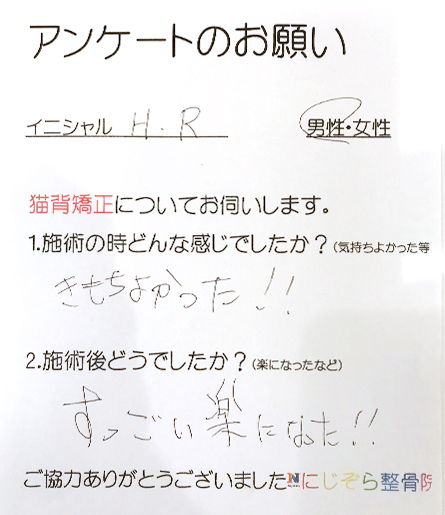 アンケートのお願い
イニシャル H.R 男性・女性
猫背矯正についてお伺いします。
1.施術の時どんな感じでしたか?(気持ちよかった等
きもちよかった!!
2.施術後どうでしたか?(楽になったなど)
すっごい楽になった!!
ご協力ありがとうございましたNにじぞら整骨院